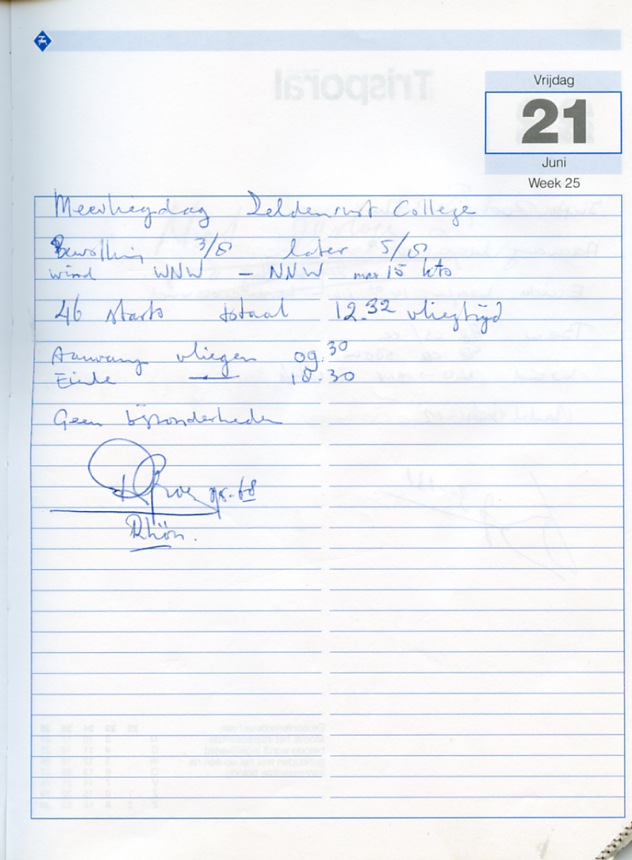 Vrijdag
21
Juni
Week 25
Meevliegdag Zeldenrust College
Bewolking 3/8 later 5/8
wind WNW - NNW max 15 kts
46 starts totaal 12.32 vliegtijd
Aanvang vliegen 09.30
Einde —"— 18.30
Geen bijzonderheden
Rhön.
Trisporal